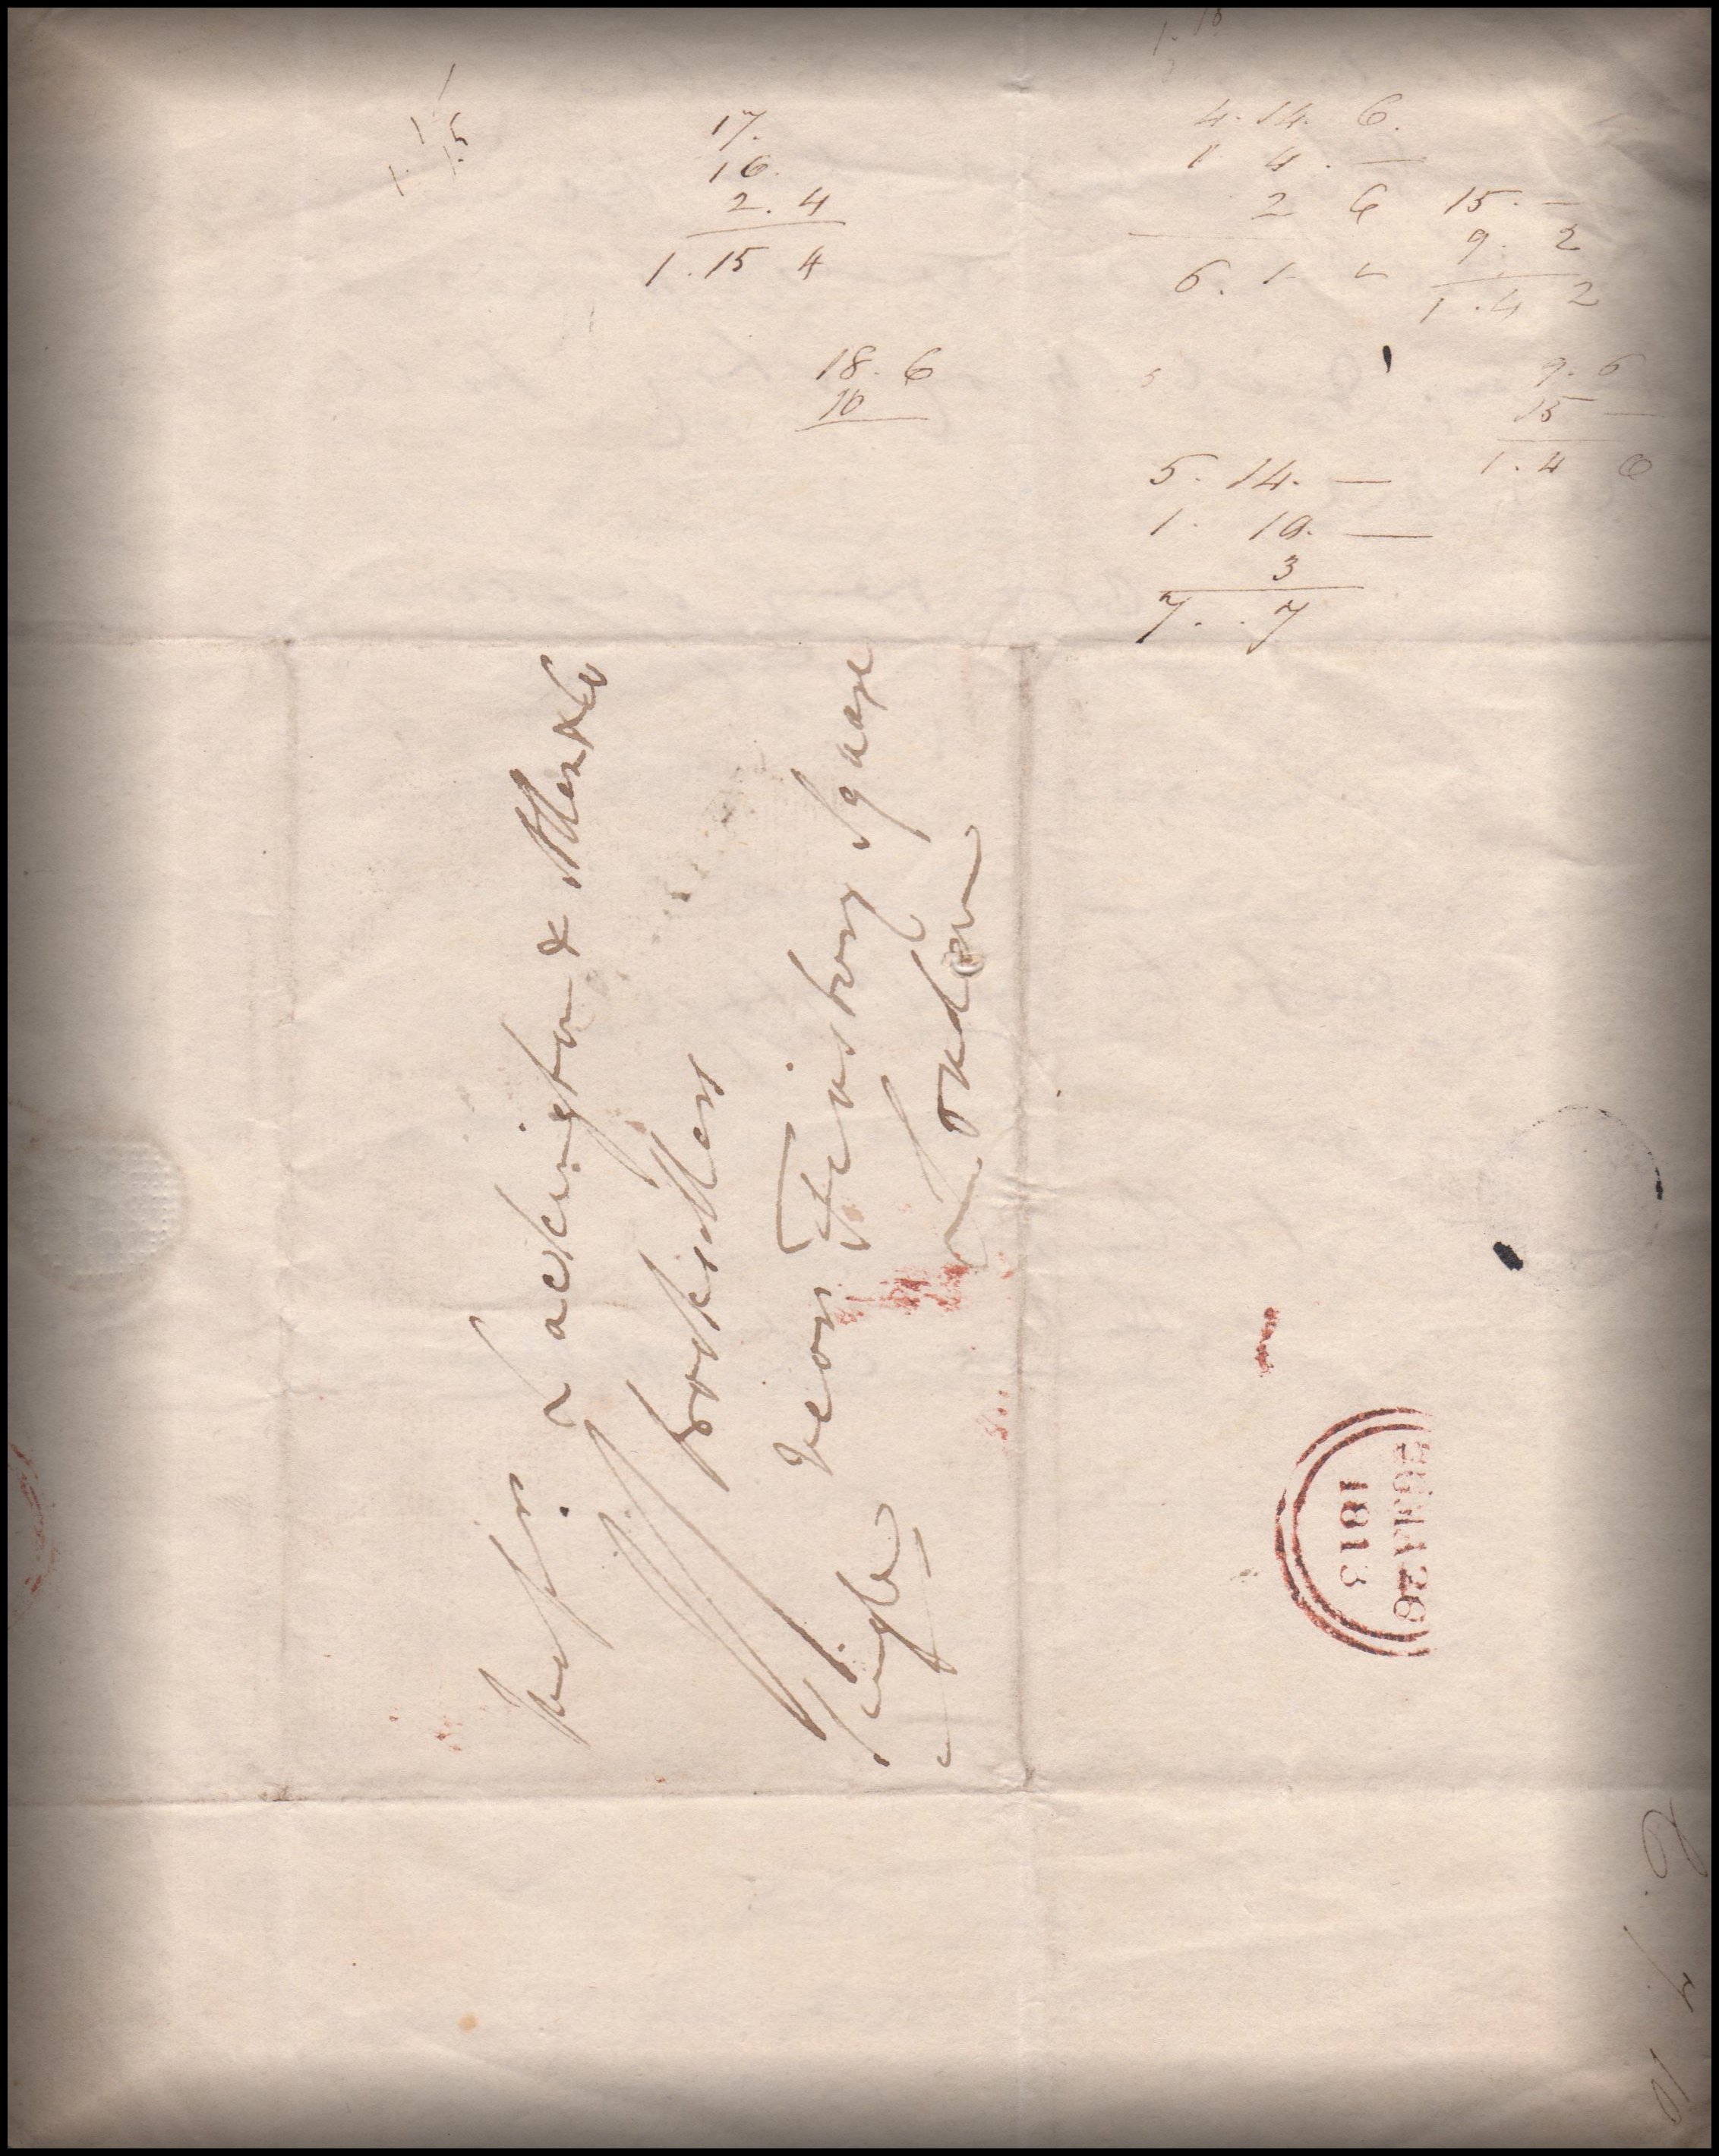 17.
16.
2. 4
1. 15 4
18. 6
10
4. 14. 6.
1 4. —
2 6
6. 1 -
15. —
9. 2
1. 4 2
9. 6
15 —
1. 4 6
5. 14. —
1. 10. —
3
7. . 7
Messrs. Lackington &
Booksellers
near Finsbury Square
London
Single
1813